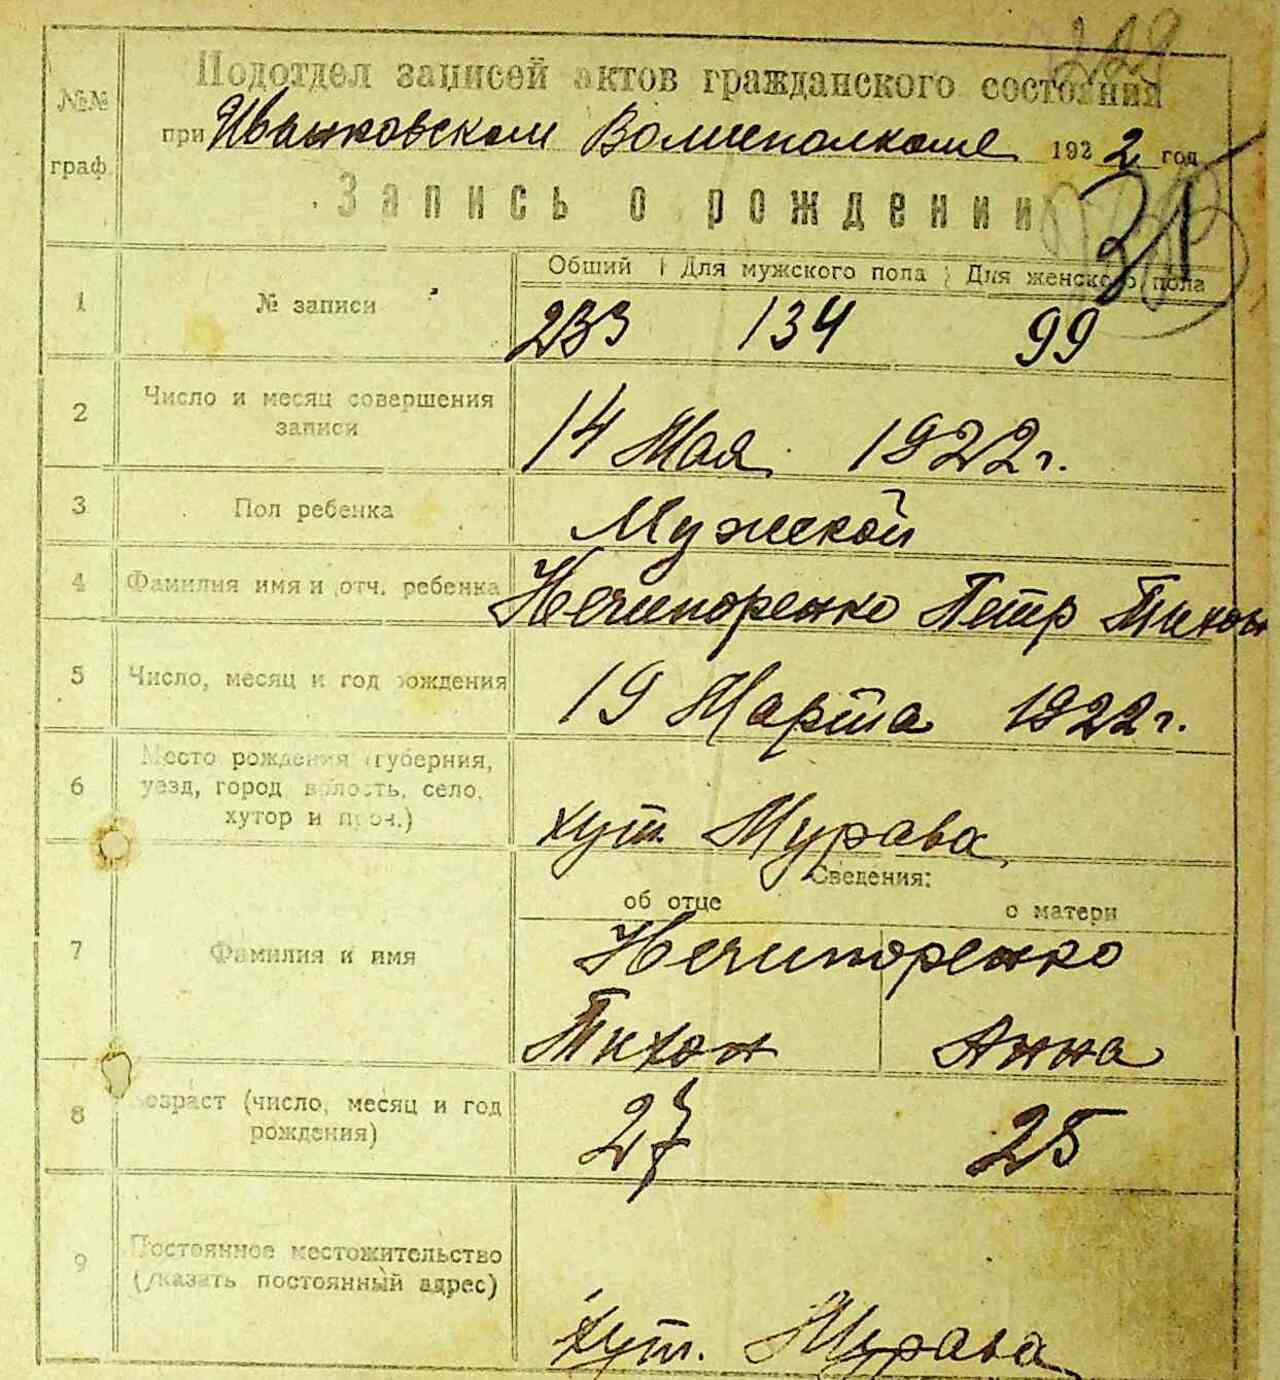 №№
граф.
Подотдел записей актов гражданского состояния
при Иванковском Волисполкоме 1922 год
Запись о рождении
31
Общий Для мужского пола Для женского пола
1 № записи 233 134 99
2 Число и месяц совершения
записи
14 Мая 1922 г.
3 Пол ребенка Мужской
4 Фамилия имя и отч. ребенка Нечипоренко Петр Тихон
5 Число, месяц и год рождения 19 Марта 1922 г.
6 Место рождения (губерния,
уезд, город волость, село,
хутор и проч.)
хут. Мурава
Сведения:
об отце о матери
7 Фамилия и имя Нечипоренко
Тихон Анна
8 Возраст (число, месяц и год
рождения)
27 25
9 Постоянное местожительство
(указать постоянный адрес)
хут. Мурава